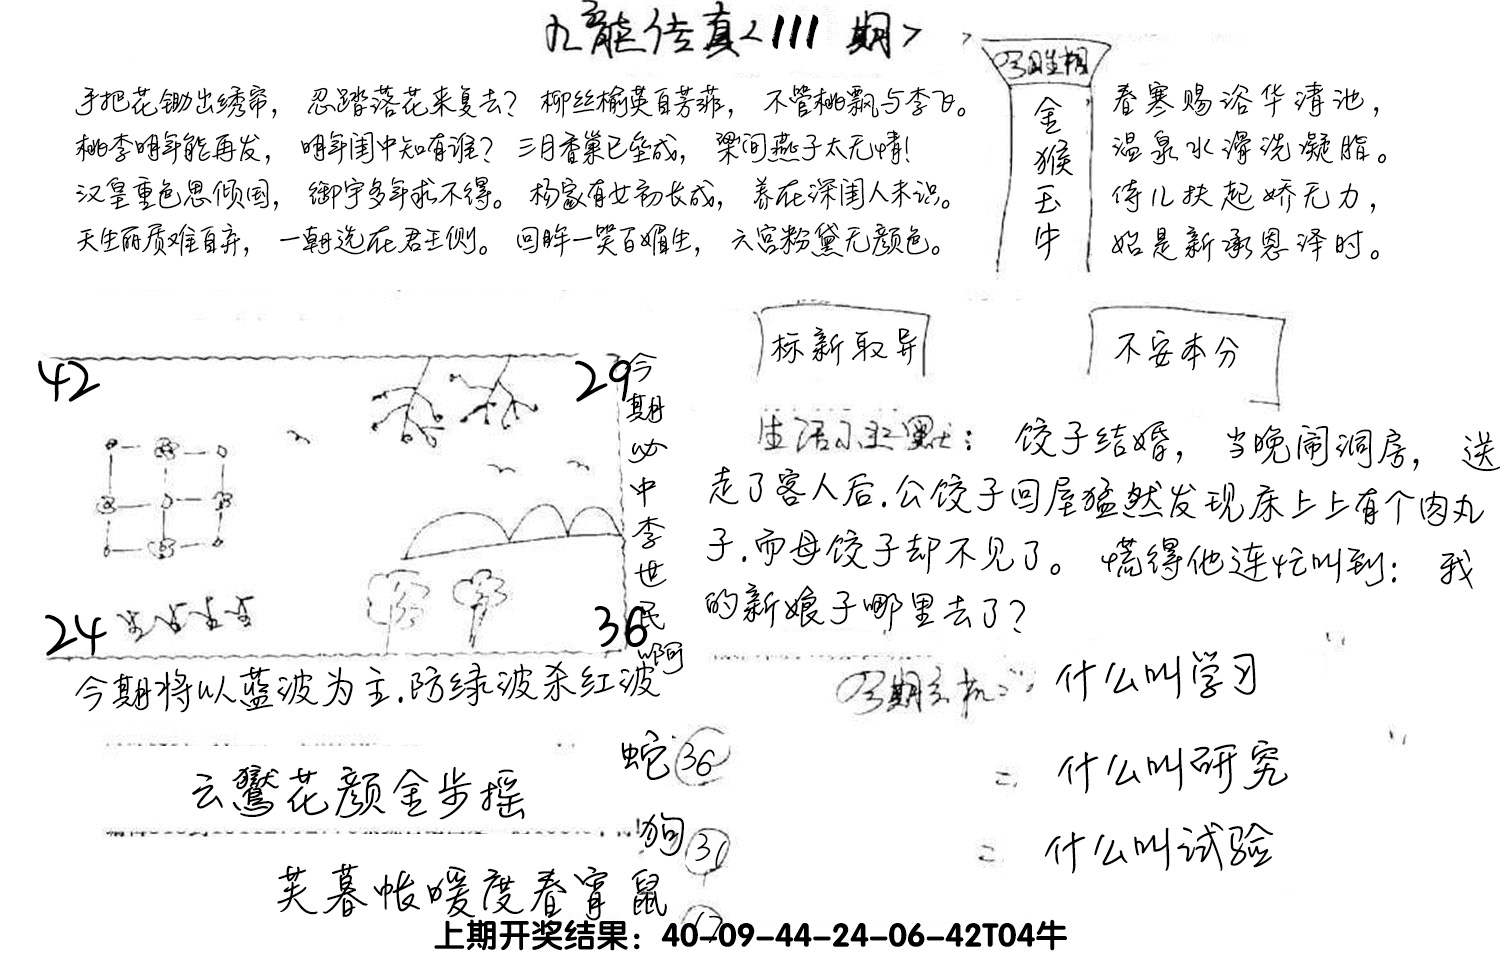 九龍传真<111 期>
手把花锄出绣帘，忍踏落花来复去？柳丝榆荚自芳菲，不管桃飘与李飞。
桃李明年能再发，明年闺中知有谁？三月香巢已垒成，梁间燕子太无情！
汉皇重色思倾国，御宇多年求不得。杨家有女初长成，养在深闺人未识。
天生丽质难自弃，一朝选在君王侧。回眸一笑百媚生，六宫粉黛无颜色。
今期生相
金猴玉牛
春寒赐浴华清池，
温泉水滑洗凝脂。
侍儿扶起娇无力，
始是新承恩泽时。
标新取异
不安本分
42
29
24
36
今期必中李世民啊
今期将以蓝波为主.防绿波杀红波
生活小幽默：饺子结婚，当晚闹洞房，送
走了客人后.公饺子回屋猛然发现床上上有个肉丸
子.而母饺子却不见了。慌得他连忙叫到：我
的新娘子哪里去了？
今期玄机：
什么叫学习
什么叫研究
什么叫试验
云鬟花颜金步摇
芙暮帐暖度春宵
蛇 36
狗 31
鼠
上期开奖结果：40-09-44-24-06-42T04牛